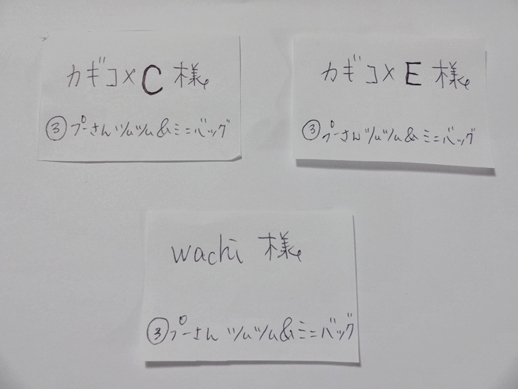 カギコ×C 様
③プーさん ツムツム&ミニバッグ
カギコ×E 様
③プーさん ツムツム&ミニバッグ
wachi 様
③プーさん ツムツム&ミニバッグ